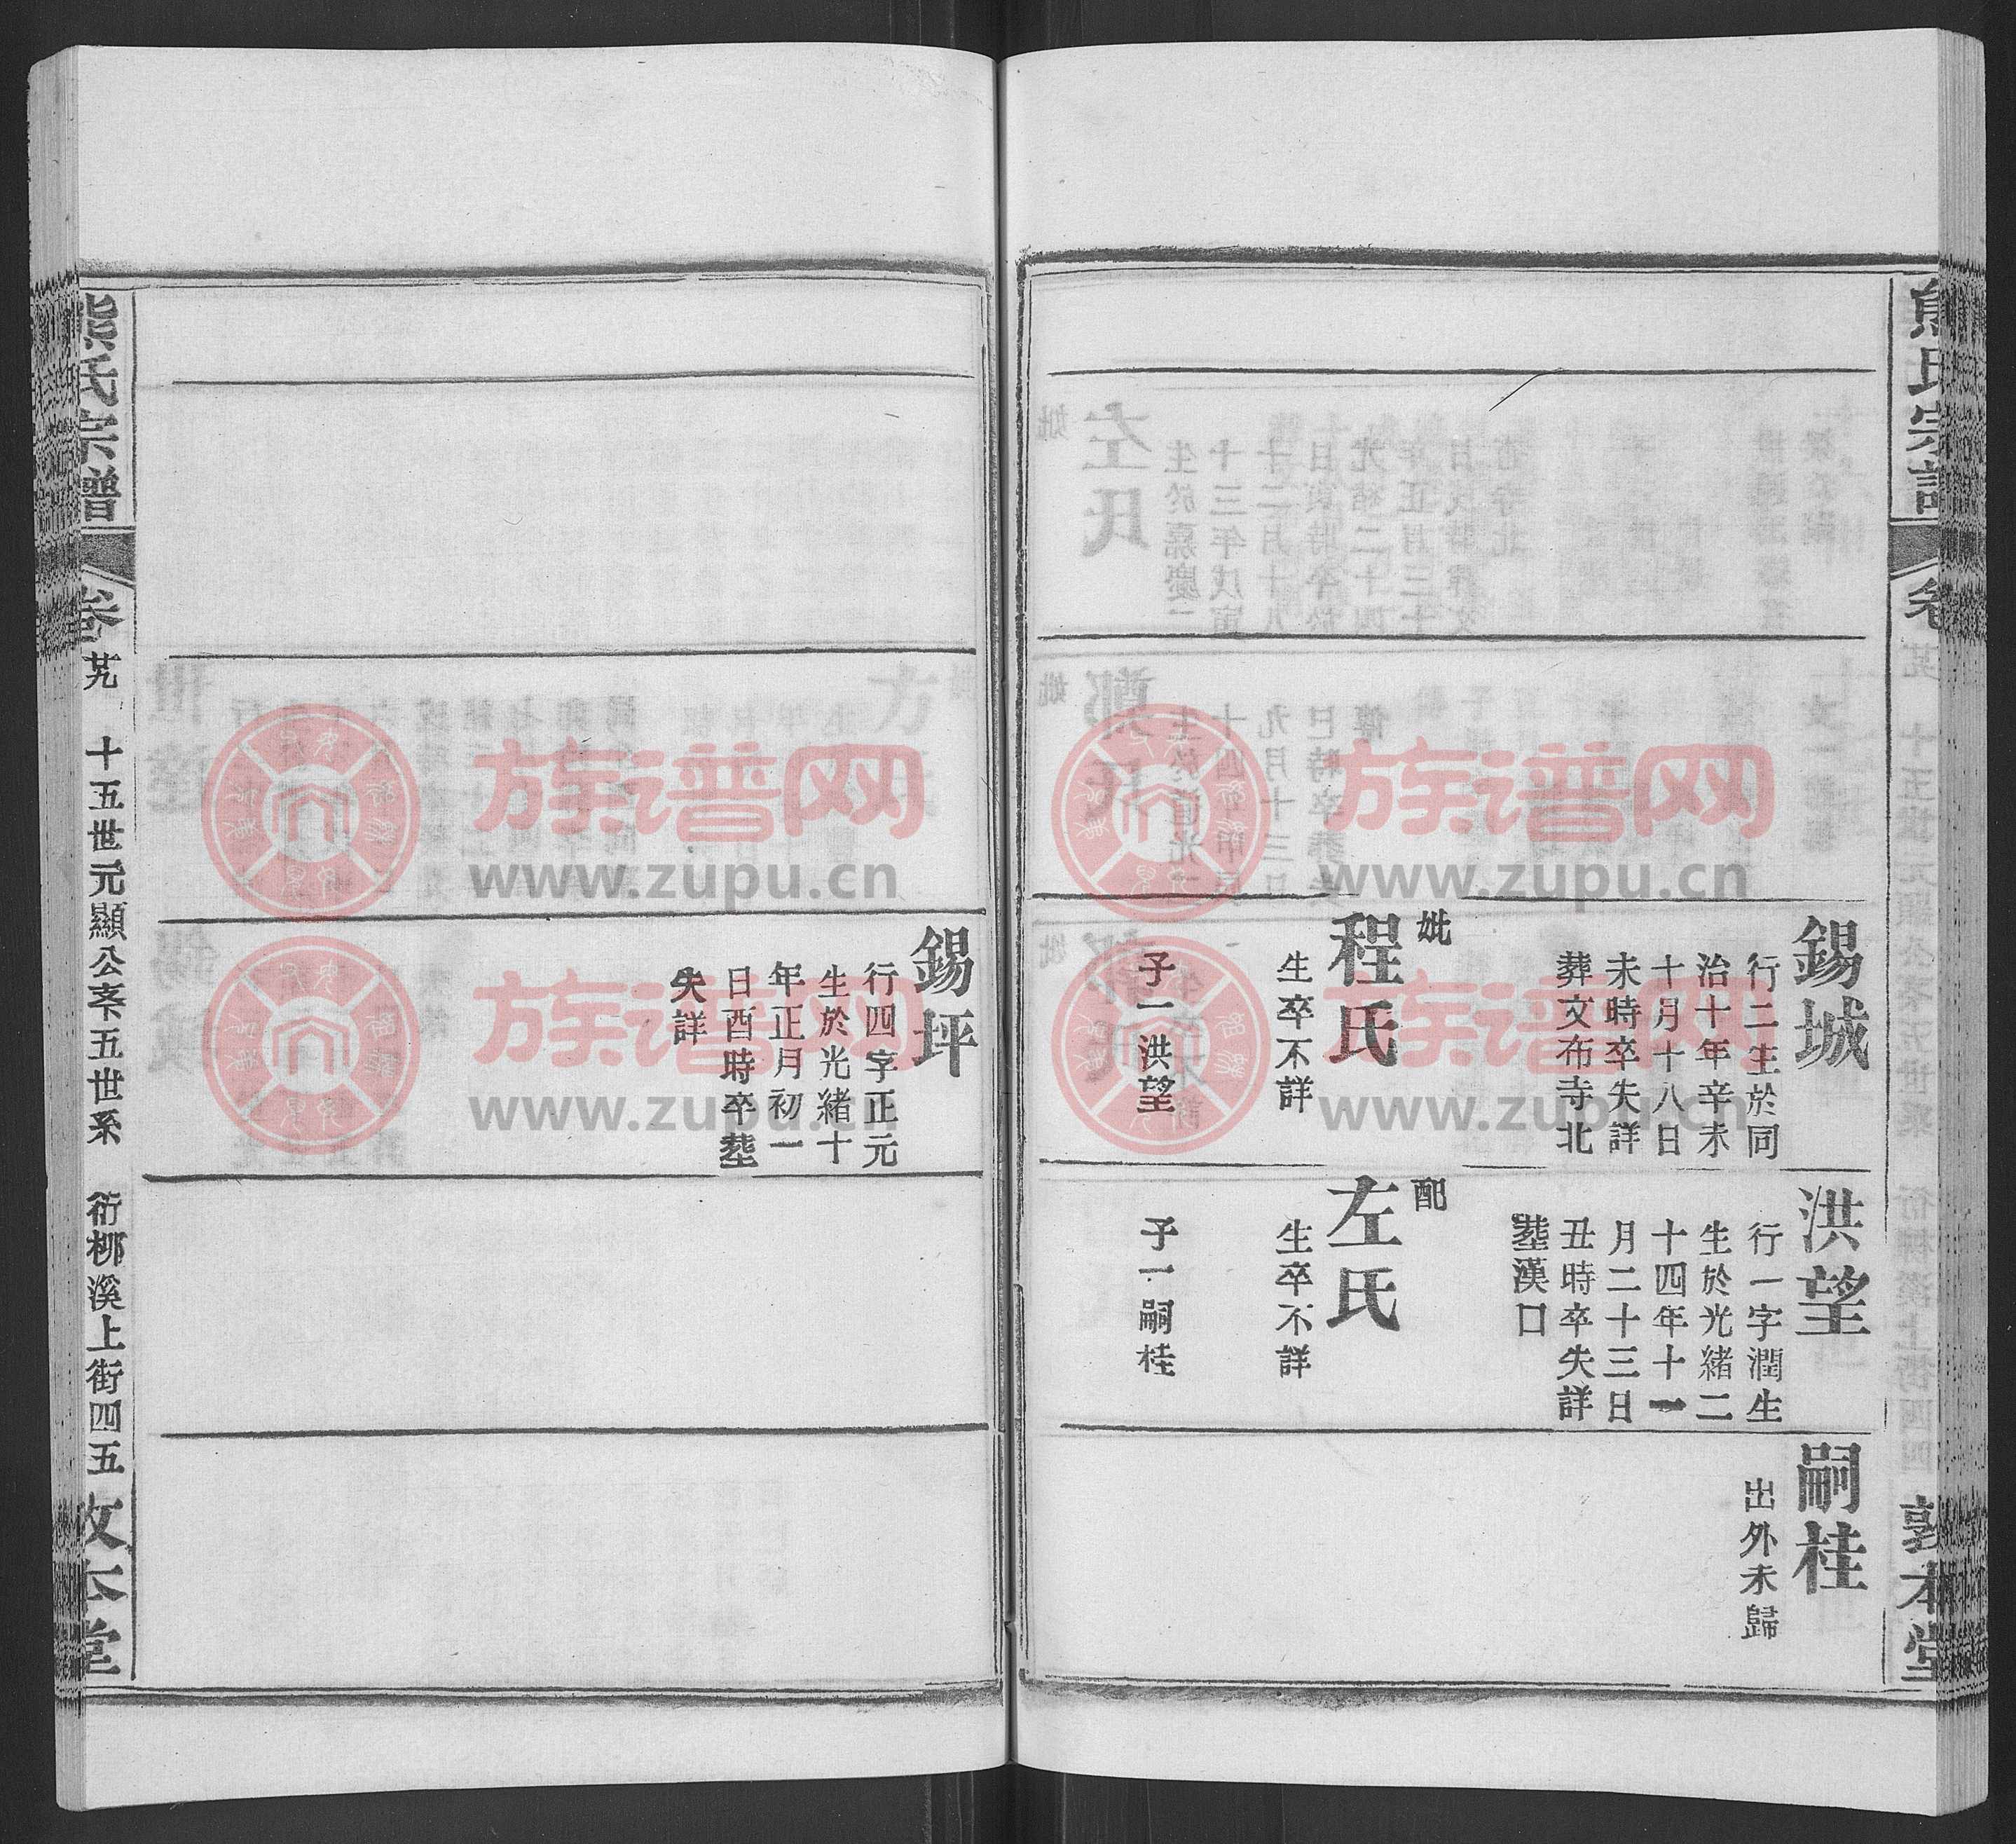 熊氏宗譜
卷
敦本堂
錫城
行二生於同
治十年辛未
十月十八日
未時卒失詳
葬文布寺北
妣
程氏
生卒不詳
子一洪望
洪望
行一字潤生
生於光緒二
十四年十一
月二十三日
丑時卒失詳
塟漢口
配
左氏
生卒不詳
子一嗣桂
嗣桂
出外未歸
錫坪
行四字正元
生於光緒十
年正月初一
日酉時卒塟
失詳
熊氏宗譜
卷 廿九 十五世元顯公支五世系 衍柳溪上街四五
敦本堂
族谱网
www.zupu.cn
族谱网
www.zupu.cn
族谱网
www.zupu.cn
族谱网
www.zupu.cn